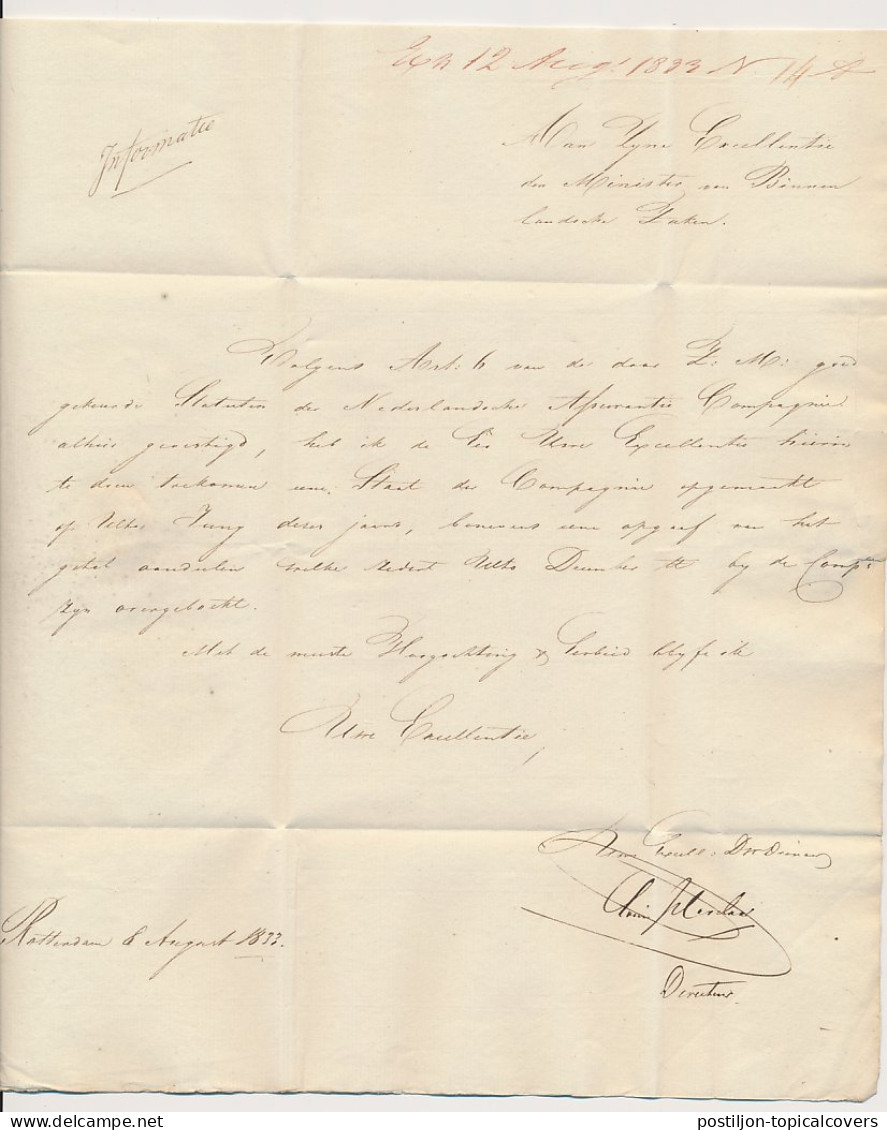 Exh 12 Augt 1833 N 14 A
Informatie
Aan Zyne Excellentie
den Minister van Binnen
landsche Zaken.
Volgens Art: 6 van de door Z: M: goed
gekeurde Statuten der Nederlandsche Assurantie Compagnie
alhier gevestigd, heb ik de Eer Uwe Excellentie hierin
te doen toekomen eene Staat der Compagnie opgemaakt
op Ultko Juny dezes jaars, benevens eene opgaaf van het
getal aandeelen welke zedert Ultko December ll by de Compie
zyn overgeboekt.
Met de meeste Hoogachting & Eerbied blyf ik
Uwe Excellentie,
Uwe Excell: Dw Dienaar
Directeur.
Rotterdam 8 August 1833.
postiljon-topicalcovers